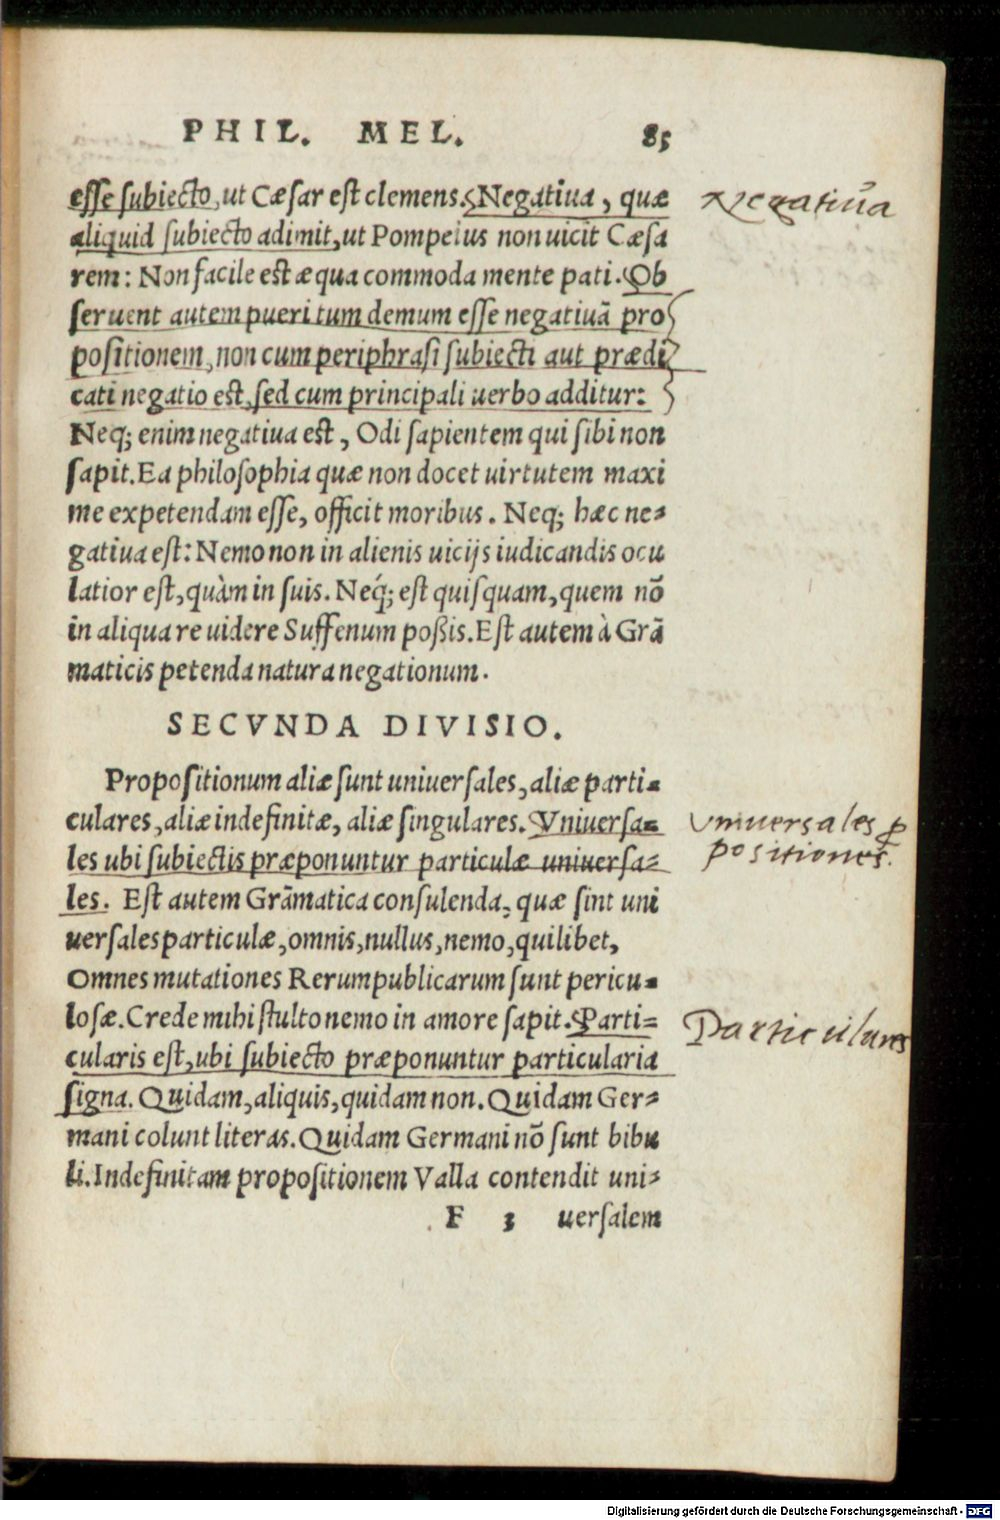 PHIL. MEL. 85
esse subiecto, ut Cæsar est clemens. Negatiua, quæ
Negatiua
aliquid subiecto adimit, ut Pompeius non uicit Cæsa
rem: Non facile est æqua commoda mente pati. Ob
seruent autem pueri tum demum esse negatiuā pro
positionem, non cum periphrasi subiecti aut prædi
cati negatio est, sed cum principali uerbo additur:
Neq; enim negatiua est, Odi sapientem qui sibi non
sapit. Ea philosophia quæ non docet uirtutem maxi
me expetendam esse, officit moribus. Neq; hæc ne-
gatiua est: Nemo non in alienis uicijs iudicandis ocu
latior est, quàm in suis. Neq́; est quisquam, quem nō
in aliqua re uidere Suffenum poßis. Est autem à Grā
maticis petenda natura negationum.
SECVNDA DIVISIO.
Propositionum aliæ sunt uniuersales, aliæ parti-
culares, aliæ indefinitæ, aliæ singulares. Vniuersa-
Vniuersales ꝓ
les ubi subiectis præponuntur particulæ uniuersa-
positiones.
les. Est autem Grāmatica consulenda, quæ sint uni
uersales particulæ, omnis, nullus, nemo, quilibet,
Omnes mutationes Rerumpublicarum sunt pericu-
losæ. Crede mihi stulto nemo in amore sapit. Parti-
Particulares
cularis est, ubi subiecto præponuntur particularia
signa. Quidam, aliquis, quidam non. Quidam Ger-
mani colunt literas. Quidam Germani nō sunt bibu
li. Indefinitam propositionem Valla contendit uni-
F 3 uersalem
Digitalisierung gefördert durch die Deutsche Forschungsgemeinschaft - DFG